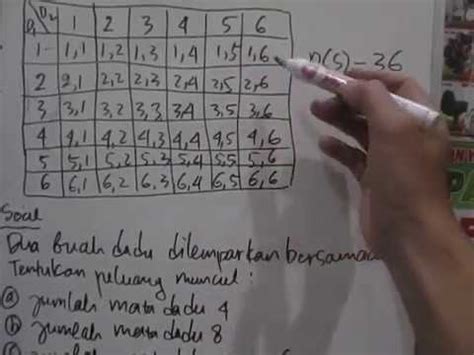 D1 D2 1 2 3 4 5 6
1 1,1 1,2 1,3 1,4 1,5 1,6
n(s) - 36
2 2,1 2,2 2,3 2,4 2,5 2,6
3 3,1 3,2 3,3 3,4 3,5 3,6
4 4,1 4,2 4,3 4,4 4,5 4,6
5 5,1 5,2 5,3 5,4 5,5 5,6
6 6,1 6,2 6,3 6,4 6,5 6,6
Soal
Dua buah dadu dilemparkan
Tentukan peluang muncul :
a jumlah mata dadu 4
b jumlah mata dadu 8